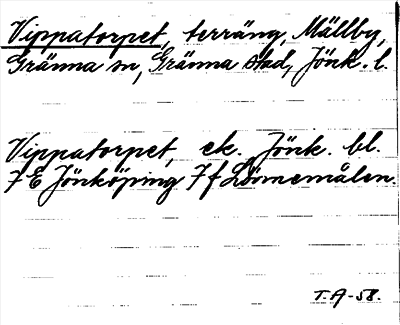 Vippatorpet, terräng, Mällby,
Gränna sn, Gränna stad, Jönk. l.
Vippatorpet, ek. Jönk. bl.
7 E Jönköping 7 f
T.A-58.